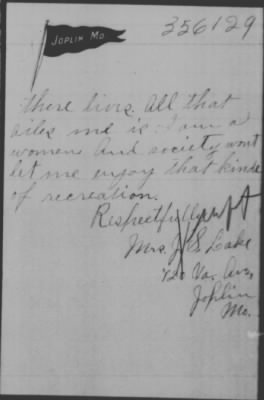 JOPLIN MO
356129
there lives. All that
ailes me is I am a
women and society wont
let me enjoy that kind
of recreation.
Respectfully
Mrs. J. E. Lake
Va. Ave,
Joplin
Mo.